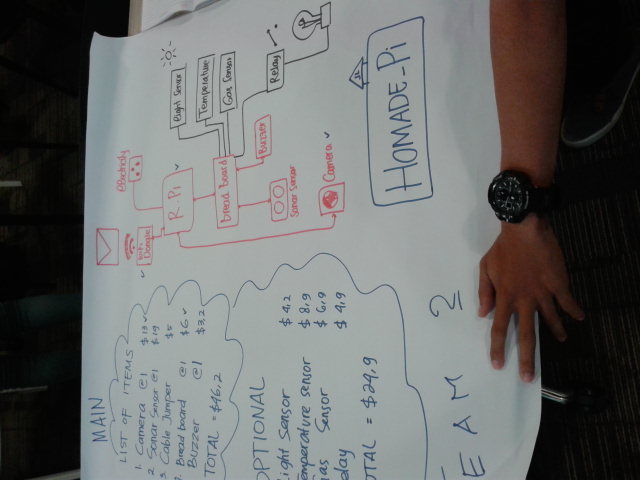 MAIN
LIST OF ITEMS
1. Camera @1 $13 ✓
2 Sonar Sensor @1 $19
3. Cable Jumper $5
Bread board @1 $6 ✓
Buzzer @1 $3,2
TOTAL = $46,2
OPTIONAL
ight Sensor $4,2
emperature sensor $8,9
as Sensor $6,9
elay $4,9
OTAL = $24,9
EAM 2
Electricity
Wi-Fi
Dongle ✓
R.Pi ✓
bread board
Light Sensor
Temperature
Gas Sensor
Relay
Buzzer
Sonar Sensor
Camera ✓
HOMADE_Pi